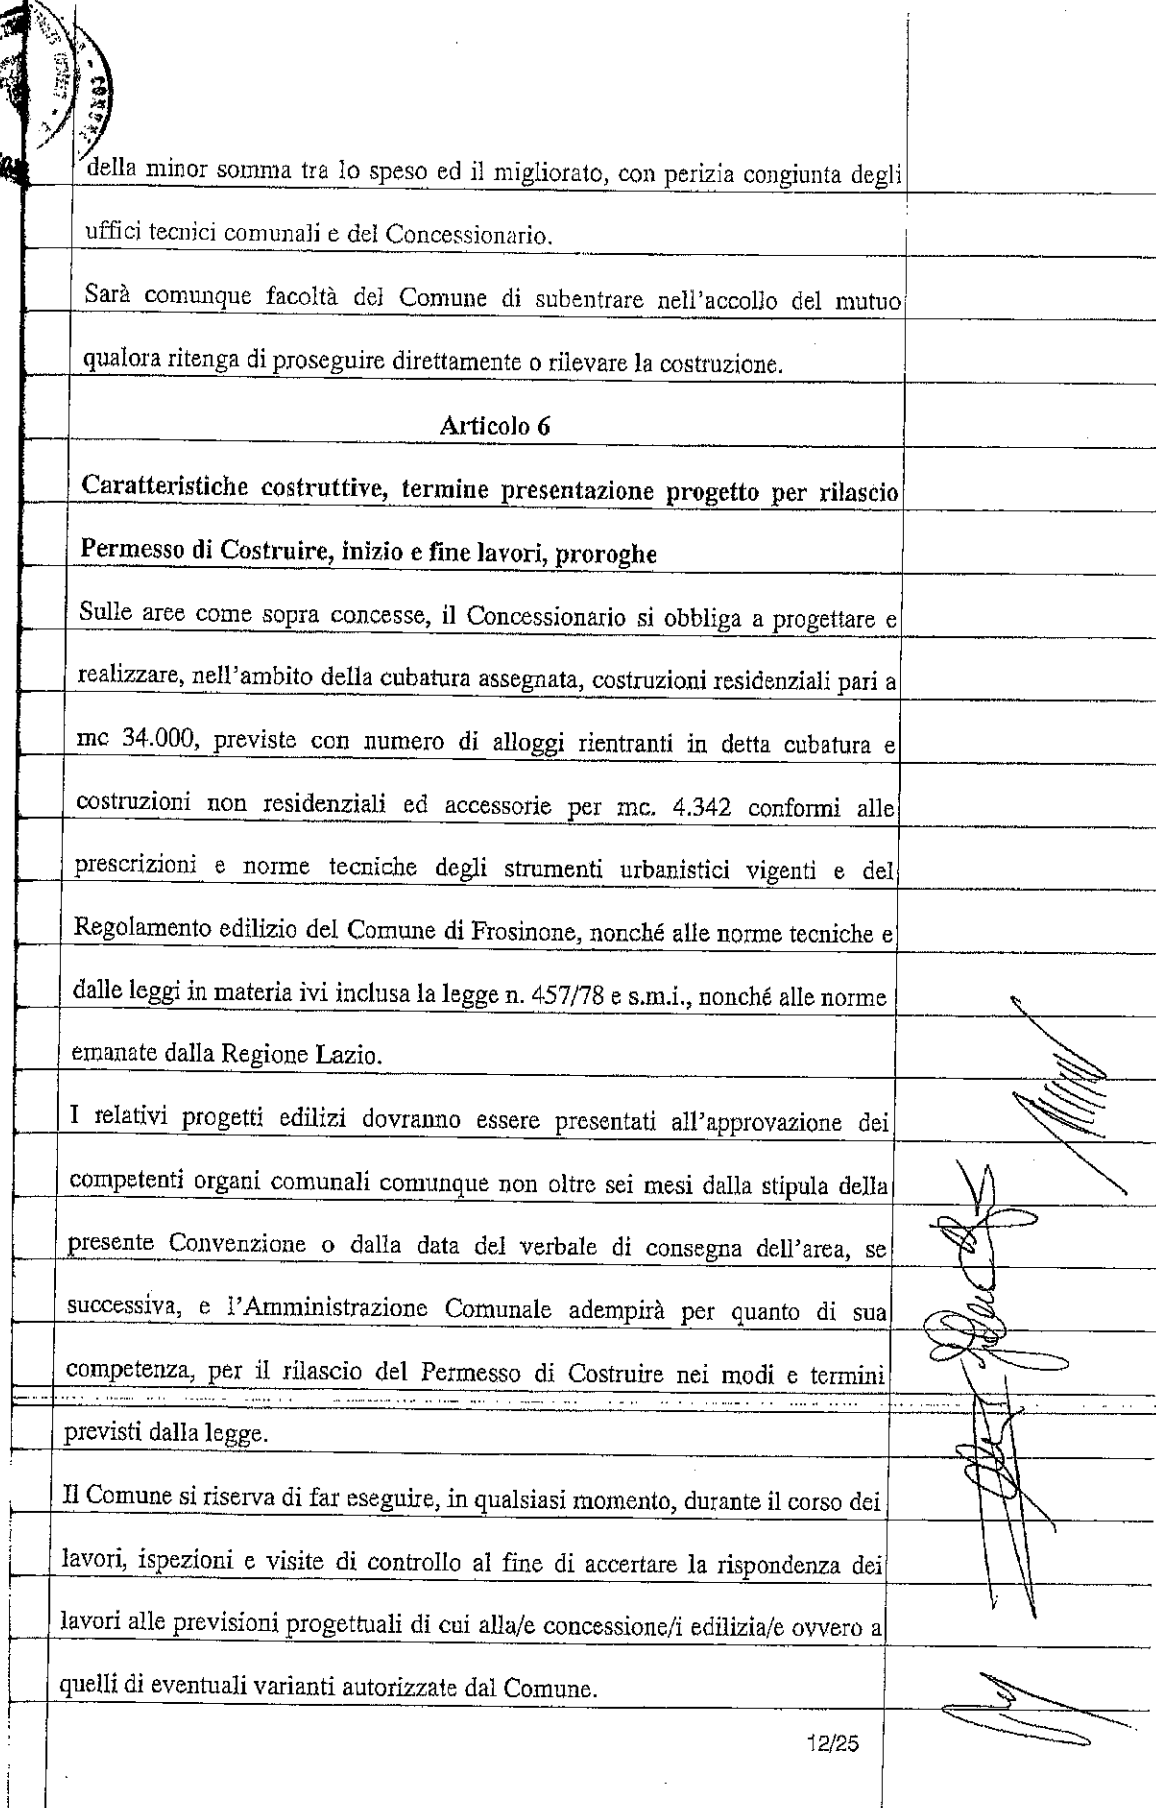 COMUNE
della minor somma tra lo speso ed il migliorato, con perizia congiunta degli
uffici tecnici comunali e del Concessionario.
Sarà comunque facoltà del Comune di subentrare nell'accollo del mutuo
qualora ritenga di proseguire direttamente o rilevare la costruzione.
Articolo 6
Caratteristiche costruttive, termine presentazione progetto per rilascio
Permesso di Costruire, inizio e fine lavori, proroghe
Sulle aree come sopra concesse, il Concessionario si obbliga a progettare e
realizzare, nell'ambito della cubatura assegnata, costruzioni residenziali pari a
mc 34.000, previste con numero di alloggi rientranti in detta cubatura e
costruzioni non residenziali ed accessorie per mc. 4.342 conformi alle
prescrizioni e norme tecniche degli strumenti urbanistici vigenti e del
Regolamento edilizio del Comune di Frosinone, nonché alle norme tecniche e
dalle leggi in materia ivi inclusa la legge n. 457/78 e s.m.i., nonché alle norme
emanate dalla Regione Lazio.
I relativi progetti edilizi dovranno essere presentati all'approvazione dei
competenti organi comunali comunque non oltre sei mesi dalla stipula della
presente Convenzione o dalla data del verbale di consegna dell'area, se
successiva, e l'Amministrazione Comunale adempirà per quanto di sua
competenza, per il rilascio del Permesso di Costruire nei modi e termini
previsti dalla legge.
Il Comune si riserva di far eseguire, in qualsiasi momento, durante il corso dei
lavori, ispezioni e visite di controllo al fine di accertare la rispondenza dei
lavori alle previsioni progettuali di cui alla/e concessione/i edilizia/e ovvero a
quelli di eventuali varianti autorizzate dal Comune.
12/25